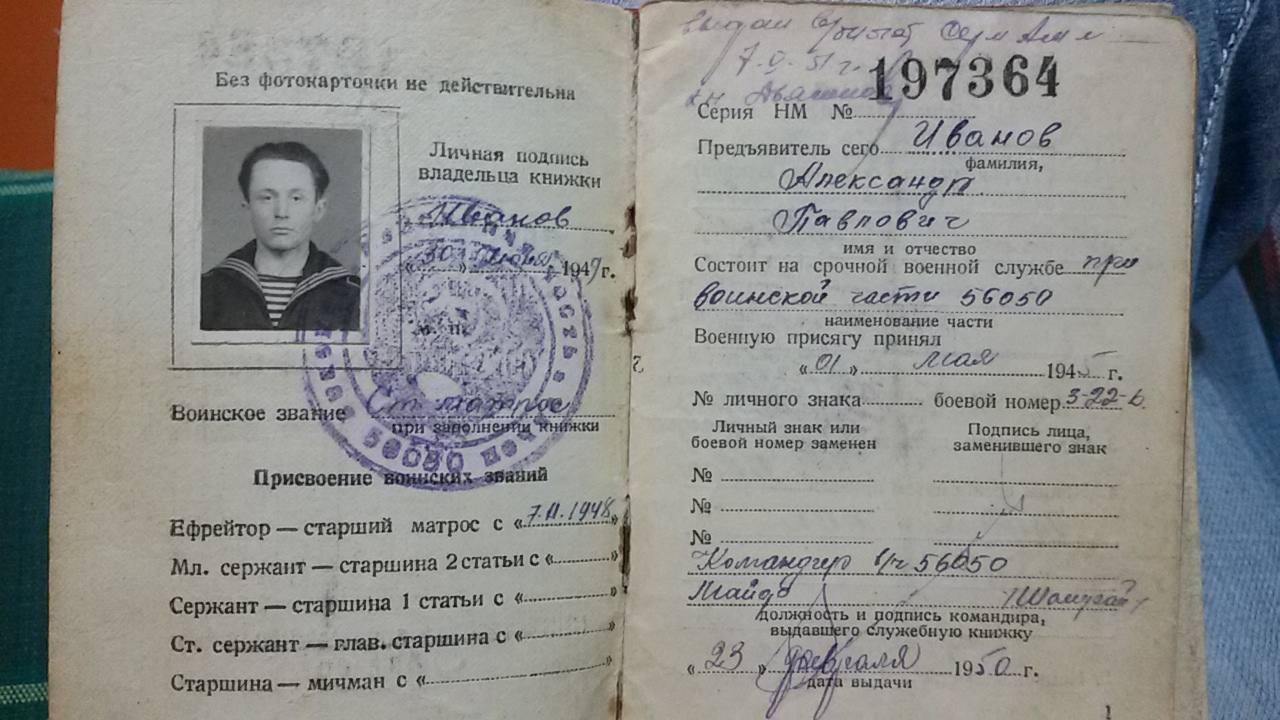 Без фотокарточки не действительна
Личная подпись
владельца книжки
Иванов
« 30 » 1947 г.
м. п.
Воинское звание Ст. матрос
при заполнении книжки
56050
Присвоение воинских званий
Ефрейтор — старший матрос с «7.II.1948»
Мл. сержант — старшина 2 статьи с « »
Сержант — старшина 1 статьи с «
Ст. сержант — глав. старшина с « »
Старшина — мичман с « »
выдан
7 51 г.
197364
Серия НМ №
Предъявитель сего Иванов
фамилия,
Александр
Павлович
имя и отчество
Состоит на срочной военной службе при
воинской части 56050
наименование части
Военную присягу принял
« 01 » мая 1945 г.
№ личного знака боевой номер 3-22-6
Личный знак или
боевой номер заменен
Подпись лица,
заменившего знак
№
№
№
Командир в/ч 56050
Майор
должность и подпись командира,
выдавшего служебную книжку
« 23 » февраля 1950 г.
дата выдачи
1